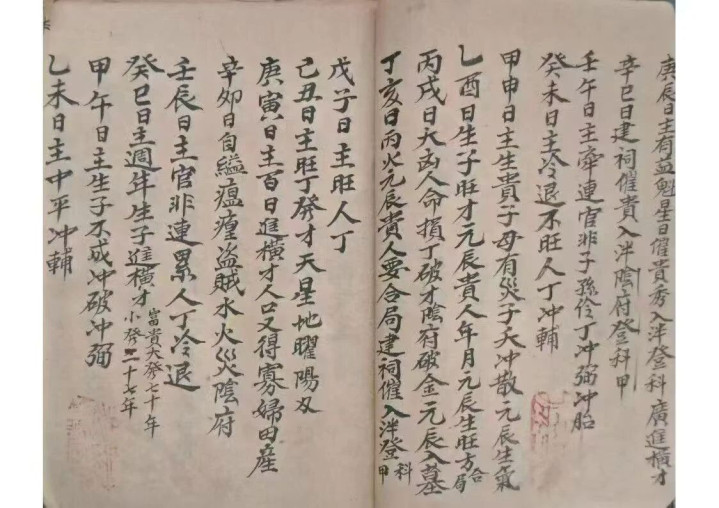 庚辰日主有益魁星日催貴秀入泮登科廣進横才
辛巳日建祠催貴入泮陰府登科甲
壬午日主牽連官非子孫伶丁冲弼冲胎
癸未日主冷退不旺人丁冲輔
甲申日主生貴子母有災子夭冲散元辰生氣
乙酉日生子旺才元辰貴人年月元辰生旺方合局
丙戌日大凶人命損丁破才陰府破金元辰入墓
丁亥日丙火元辰貴人要合局建祠催入泮登科甲
戊子日主旺人丁
己丑日主旺丁發才天星地曜陽
庚寅日主百日進横才人口又得寡婦田産
辛卯日自縊瘟瘴盜賊水火災陰府
壬辰日主官非連累人丁冷退
癸巳日主週年生子進横才富貴大發七十年小發二十七年
甲午日主生子不成冲破冲弼
乙未日主中平冲輔